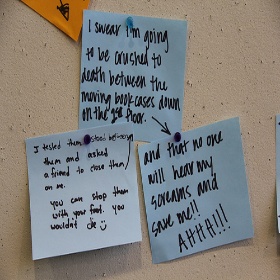 I swear i'm going
to be crushed to
death between the
moving bookcases down
on the 2nd floor.
and that no one
will hear my
screams and
save me!!
AHHH!!!!
I tested them, stood between
them and asked
a friend to close them
on me.
you can stop them
with your foot. you
wouldn't die